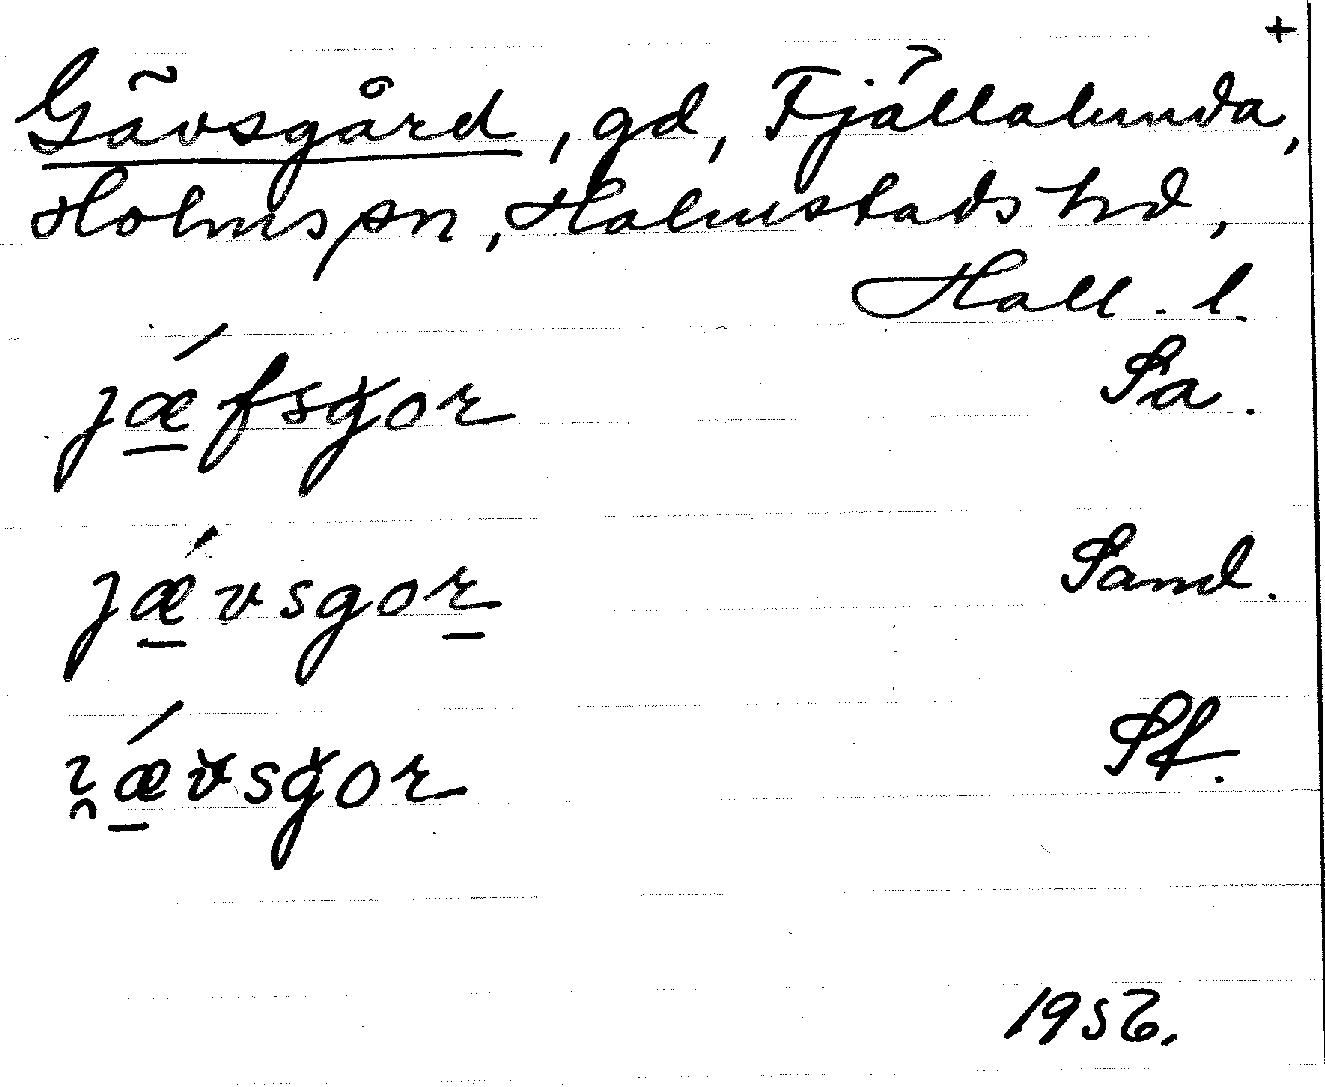 +
Gävsgård, gd, Fjällalunda,
Holms sn, Halmstads hrd,
Hall. l.
jǽ̲fsgor Sa.
jǽ̲vsgor̲ Sand.
i̯ǽ̲vsgor St.
1956.